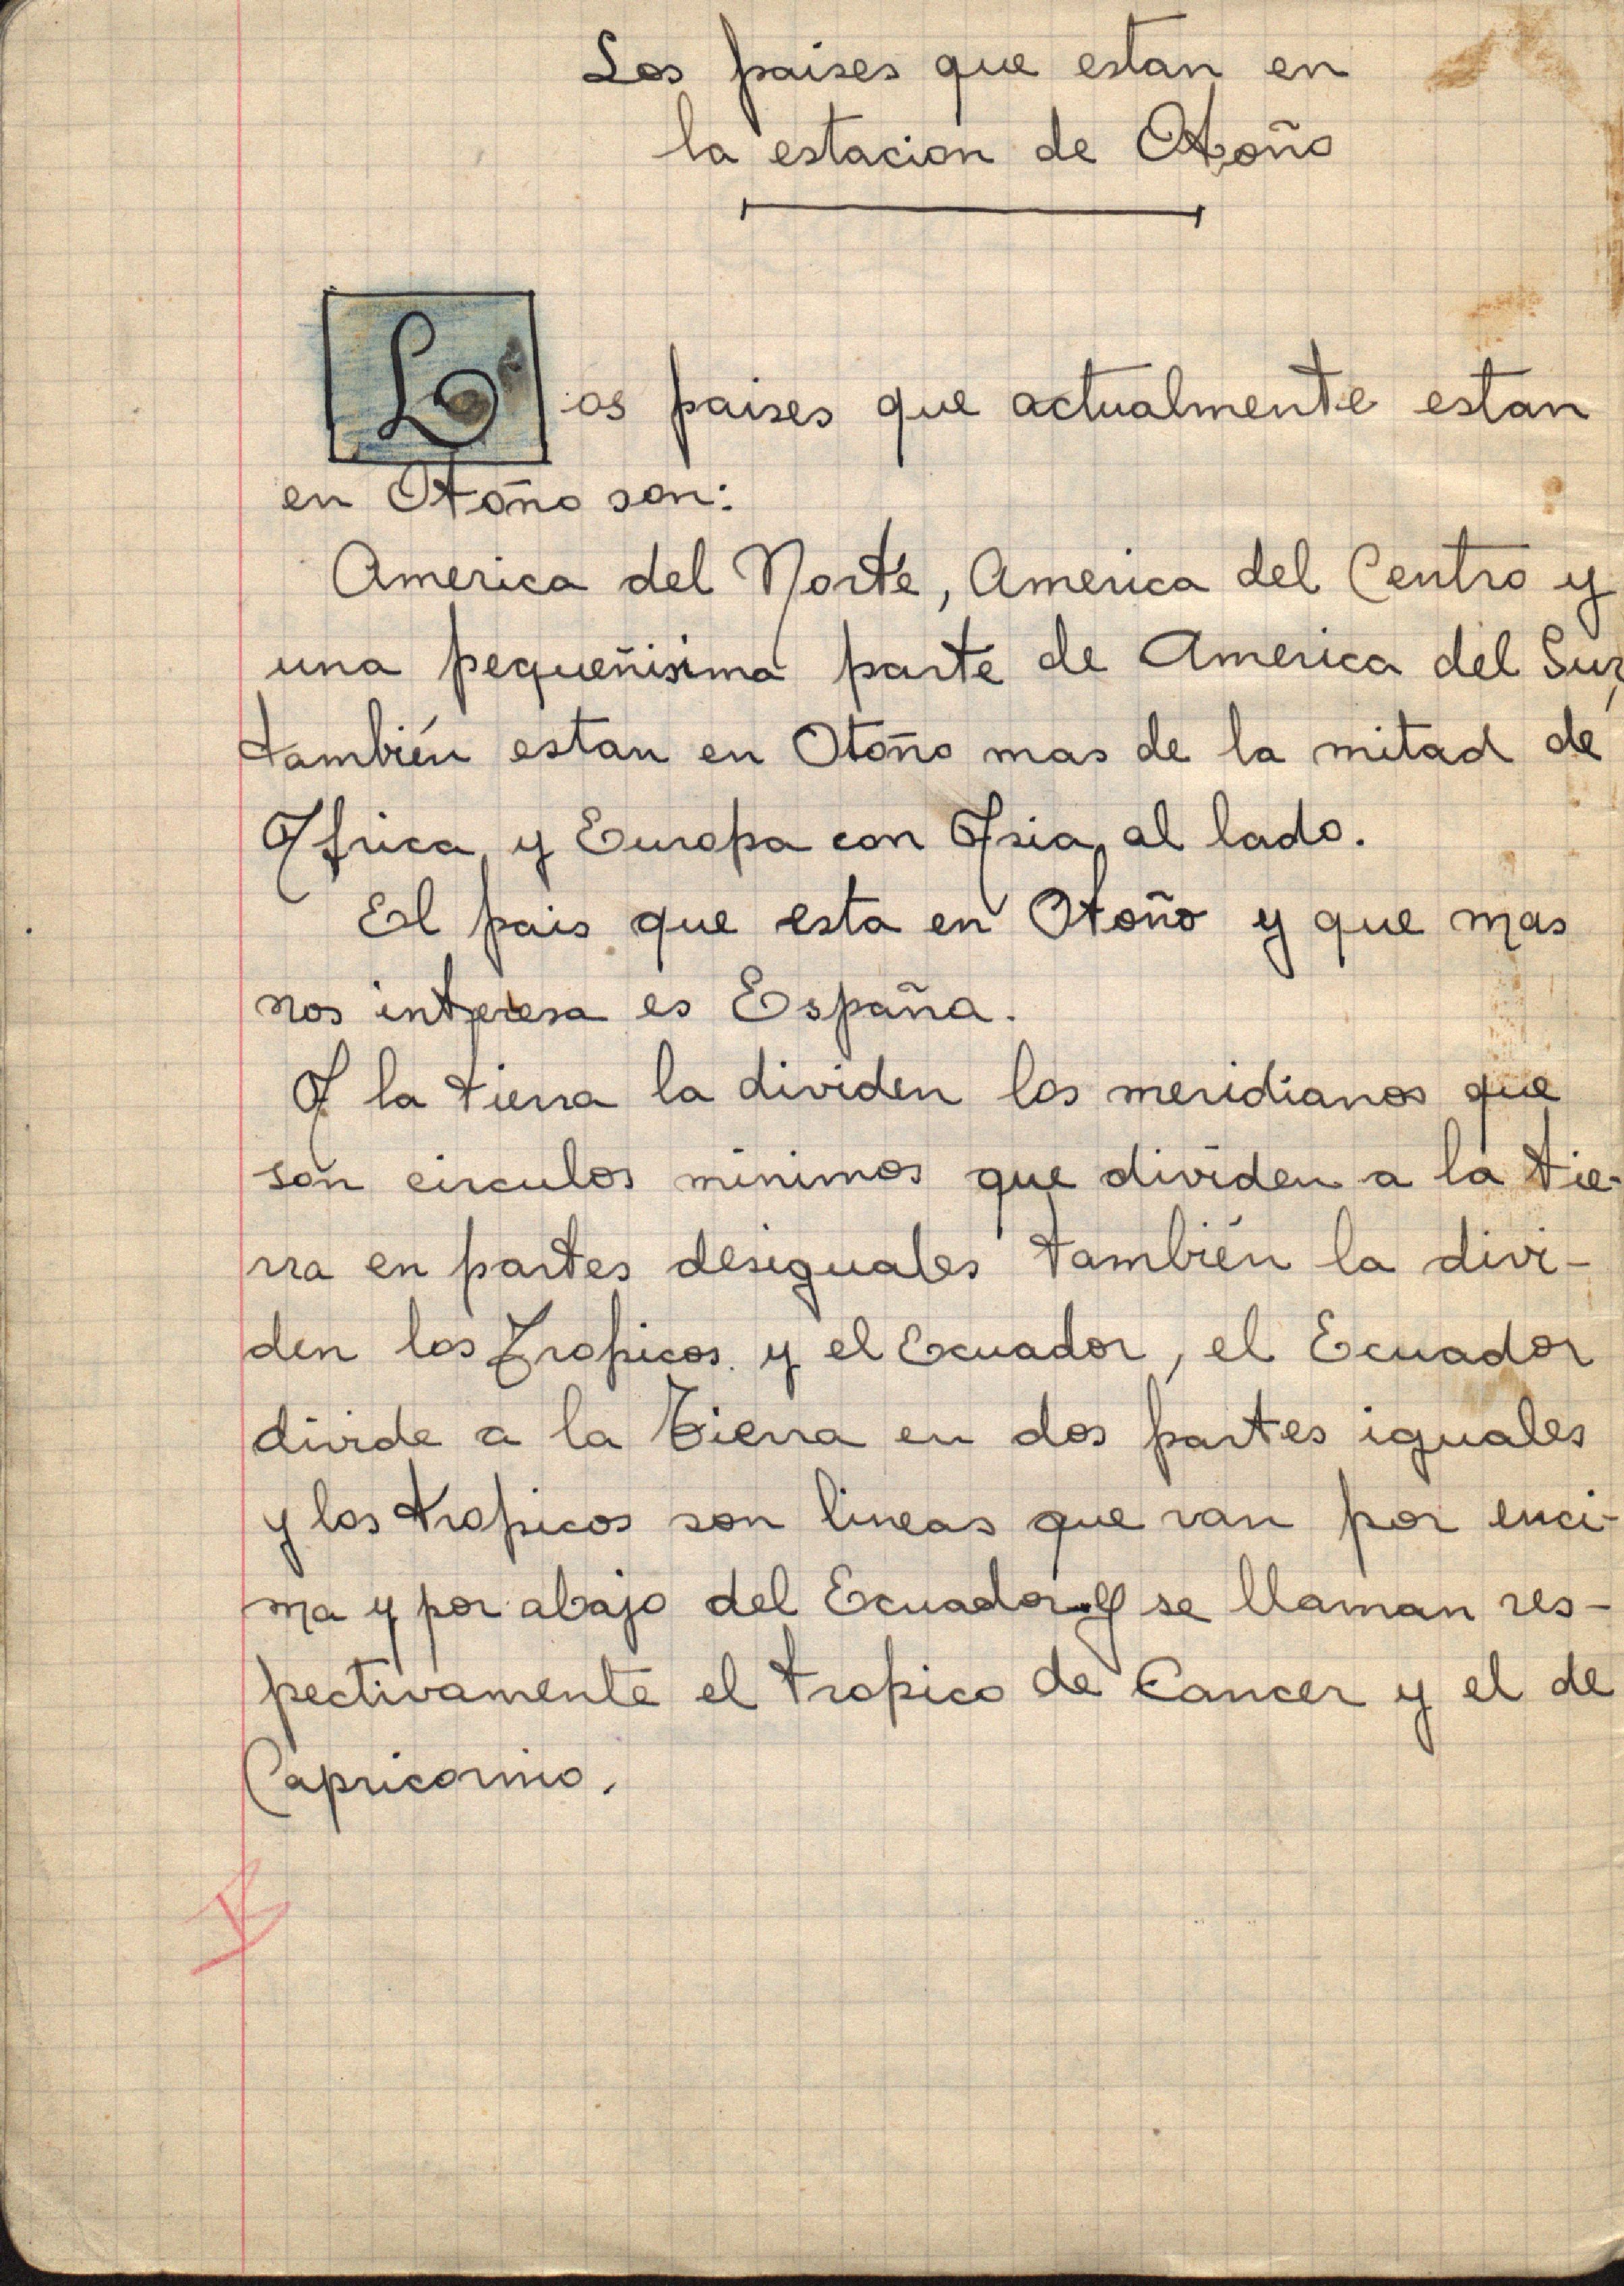 Los paises que estan en
la estacion de Otoño
Los paises que actualmente estan
en Otoño son:
America del Norte, America del Centro y
una pequeñisima parte de America del Sur,
también estan en Otoño mas de la mitad de
Africa, y Europa con Asia, al lado.
El pais que esta en Otoño y que mas
nos interesa es España.
A la tierra la dividen los meridianos que
son circulos minimos que dividen a la tie-
rra en partes desiguales también la divi-
den los Tropicos y el Ecuador, el Ecuador
divide a la Tierra en dos partes iguales
y los tropicos son lineas que van por enci-
ma y por abajo del Ecuador y se llaman res-
pectivamente el tropico de Cancer y el de
Capricornio.